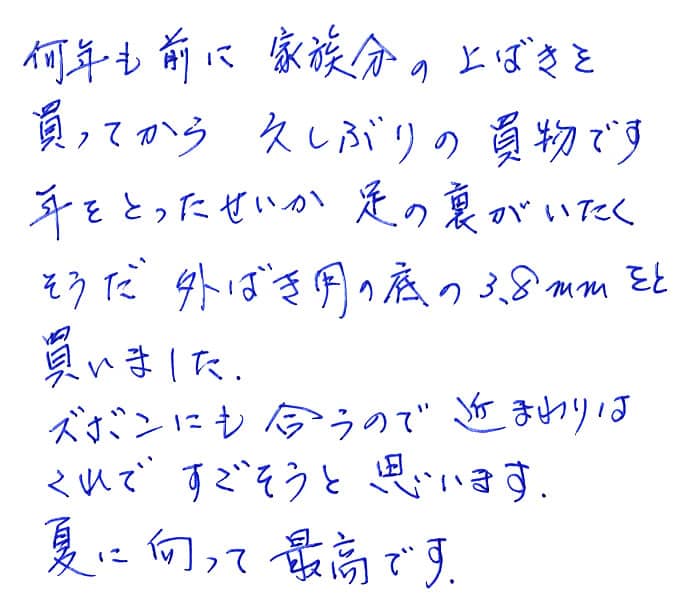 何年も前に 家族分の上ばきを
買ってから 久しぶりの買物です
年をとったせいか 足の裏がいたく
そうだ 外ばき用の底の3.8mmをと
買いました.
ズボンにも合うので 近まわりは
くれで すごそうと思います.
夏に向って最高です.